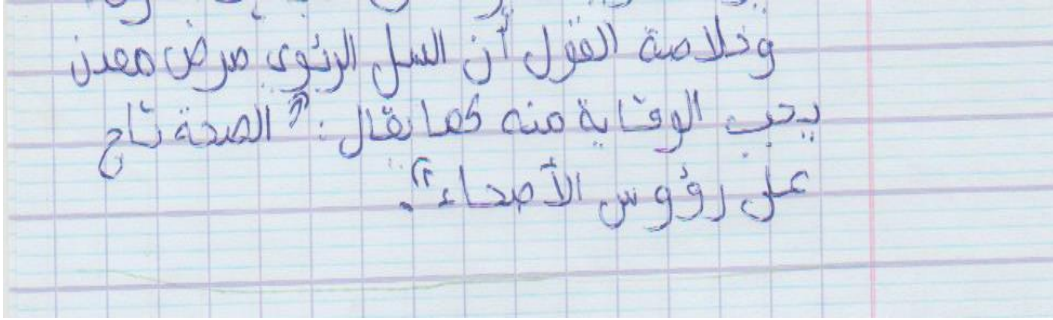 وخلاصة القول أن السل الرئوي مرض معدن
يجب الوقاية منه كما يقال: "الصحة تاج
على رؤوس الأصحاء".